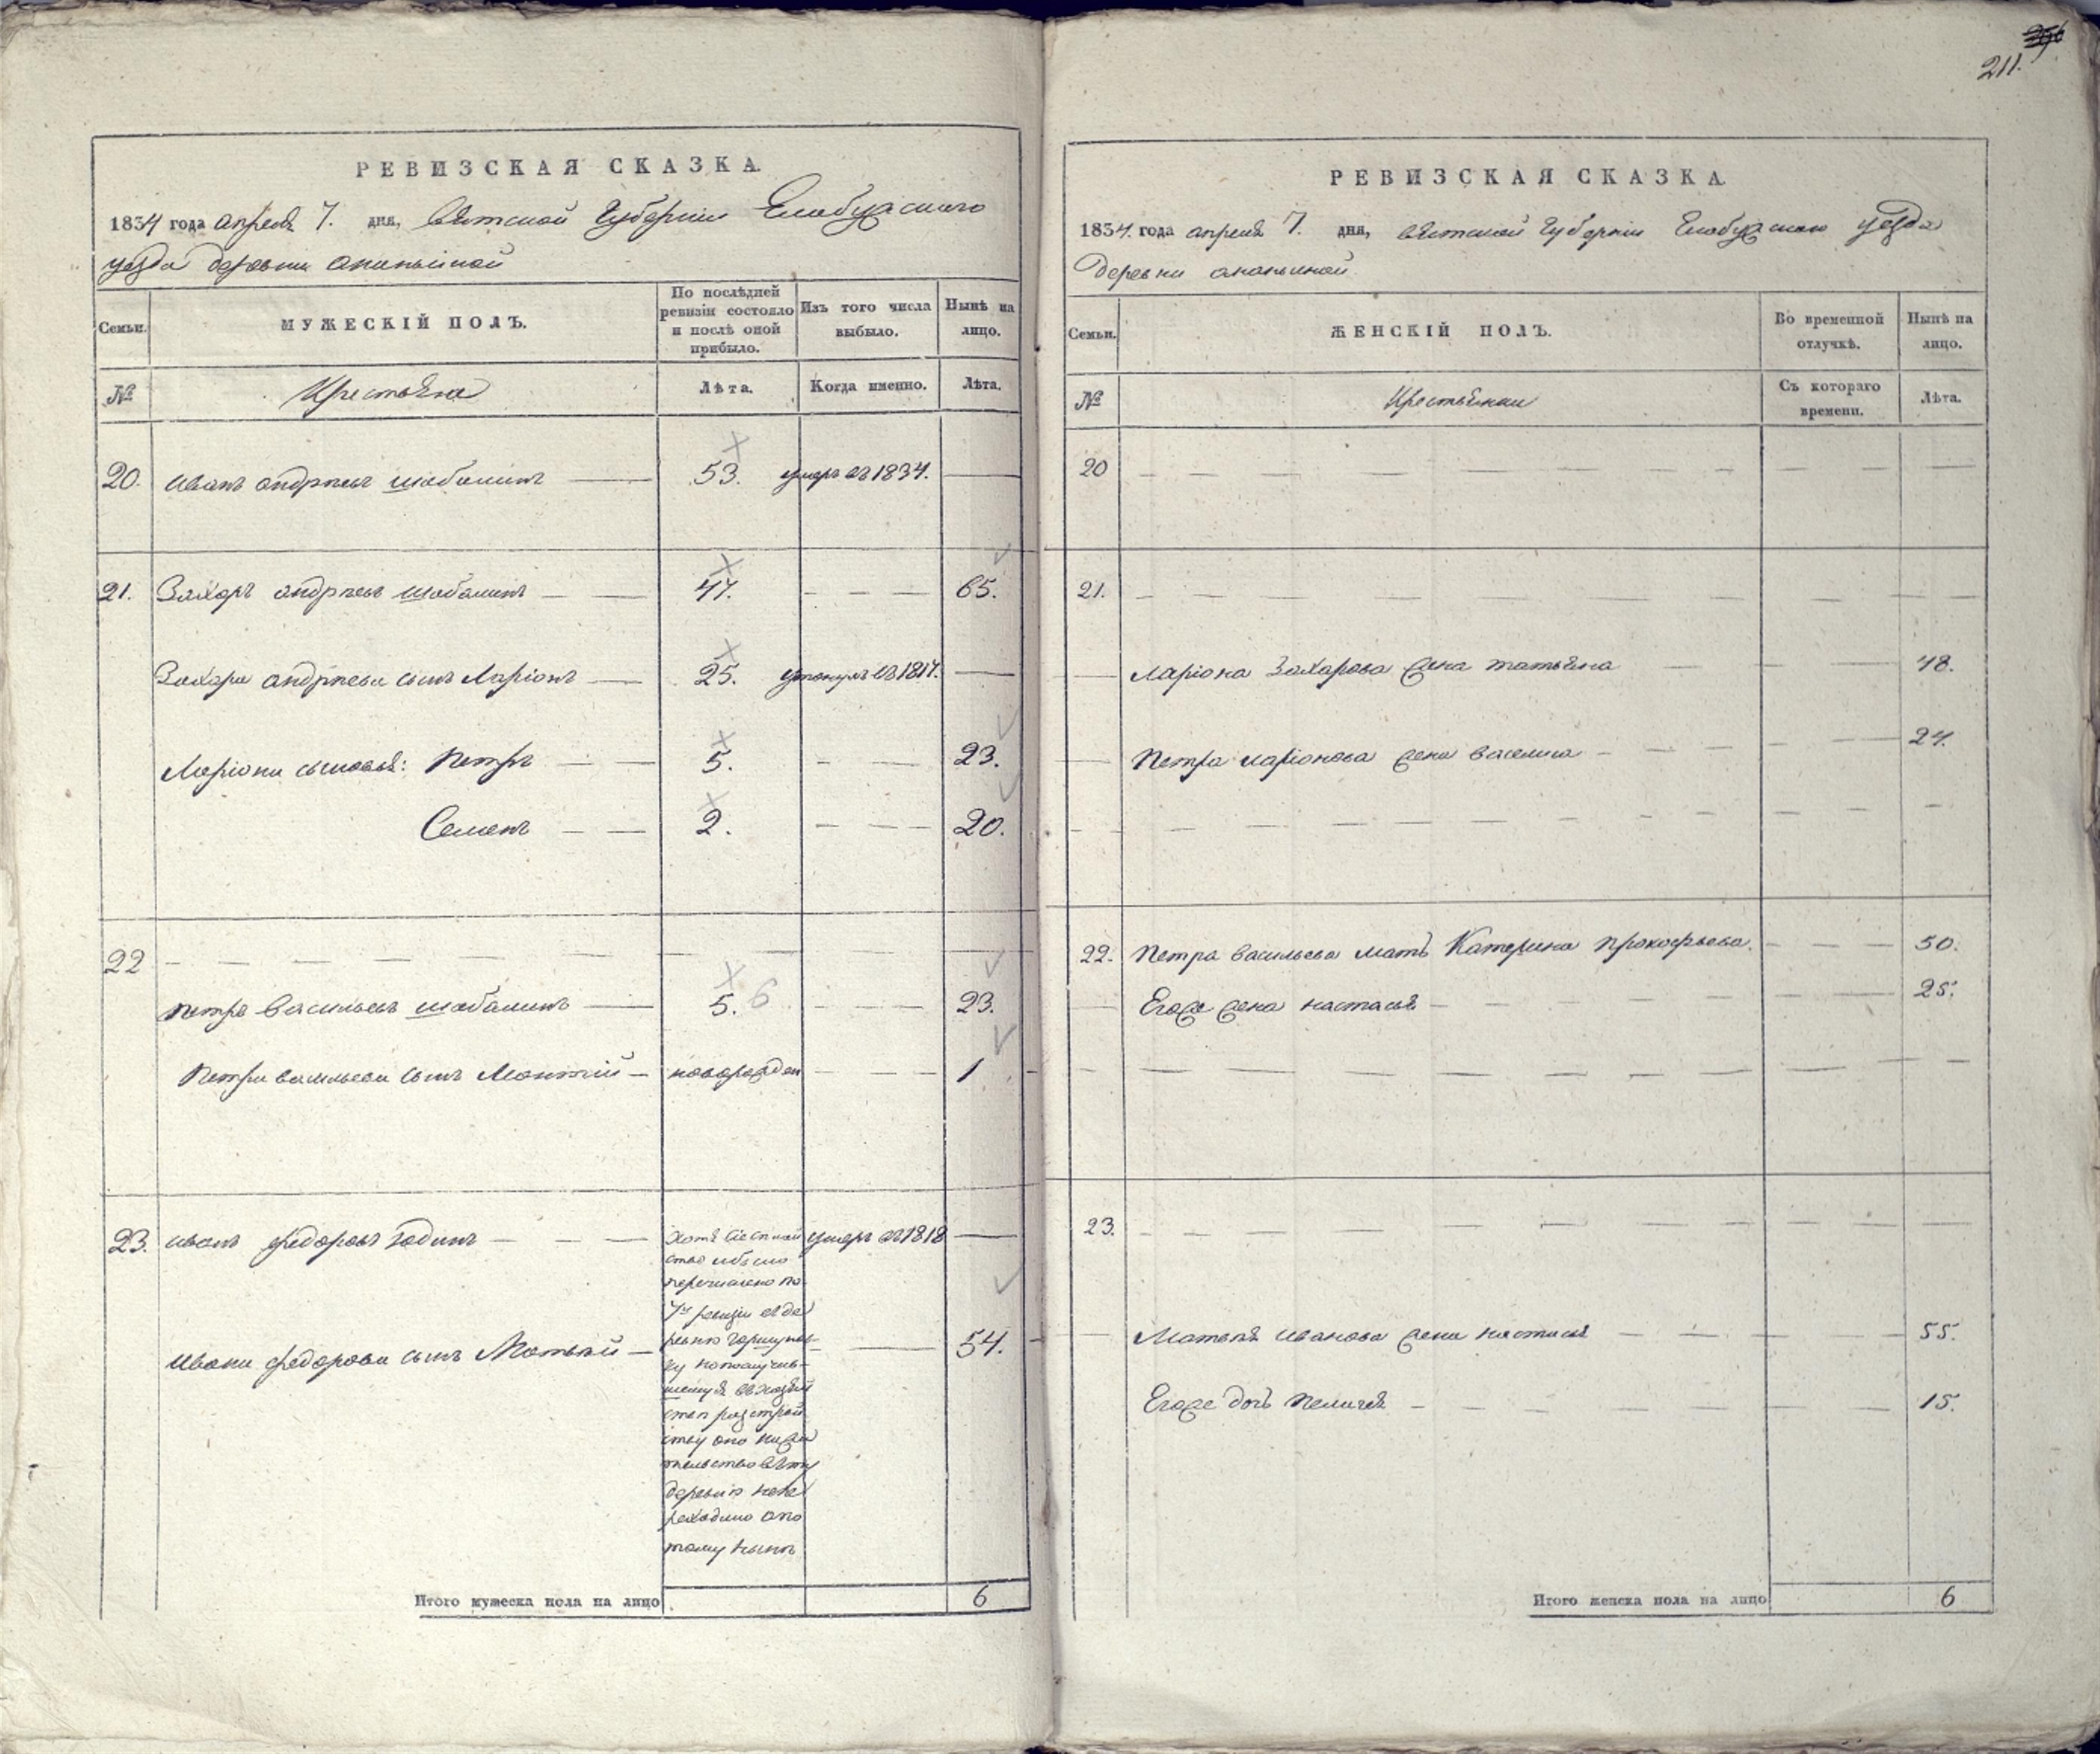 РЕВИЗСКАЯ СКАЗКА.
1834 года апреля 7. дня, Вятской Губернии Елабужскаго
уезда деревни ананьиной
Семьи.
МУЖЕСКІЙ ПОЛЪ.
По послѣдней ревизіи состояло и послѣ оной прибыло.
Изъ того числа выбыло.
Нынѣ на лицо.
№
Крестьяне
Лѣта.
Когда именно.
Лѣта.
20. иванъ андреевъ шабалинъ 53. умеръ въ 1834.
21. Захаръ андреевъ шабалинъ 47. 65.
Захара андреева сынъ Ларіонъ 25. утонулъ въ 1817.
Ларіона сыновья: Петръ 5. 23.
Семенъ 2. 20.
22
петръ васильевъ шабалинъ 5. 6 23.
Петра васильева сынъ новорожден 1
23. иванъ федоровъ умеръ въ 1818
хотя
ство и было
перечислено по
7й ревизіи въ де
ревню
разстрой
ству оно на жи
тельство въ ту
деревню не пе
реходило а по
тому нынѣ
ивана федорова сынъ Матвей 54.
Итого мужеска пола на лицо 6
211.
РЕВИЗСКАЯ СКАЗКА.
1834. года апреля 7. дня, Вятской Губерніи Елабужскаго уезда
Деревни ананьиной
Семьи.
ЖЕНСКІЙ ПОЛЪ.
Во временной отлучкѣ.
Нынѣ на лицо.
№
Крестьянки
Съ котораго времени.
Лѣта.
20
21.
Ларіона Захарова жена татьяна 48.
Петра ларіонова жена василиса 24.
22. Петра васильева мать Катерина прокофьева. 50.
Егоже жена настасья 25.
23.
Матвея иванова жена настасья 55.
Егоже дочь пелагея 15.
Итого женска пола на лицо 6